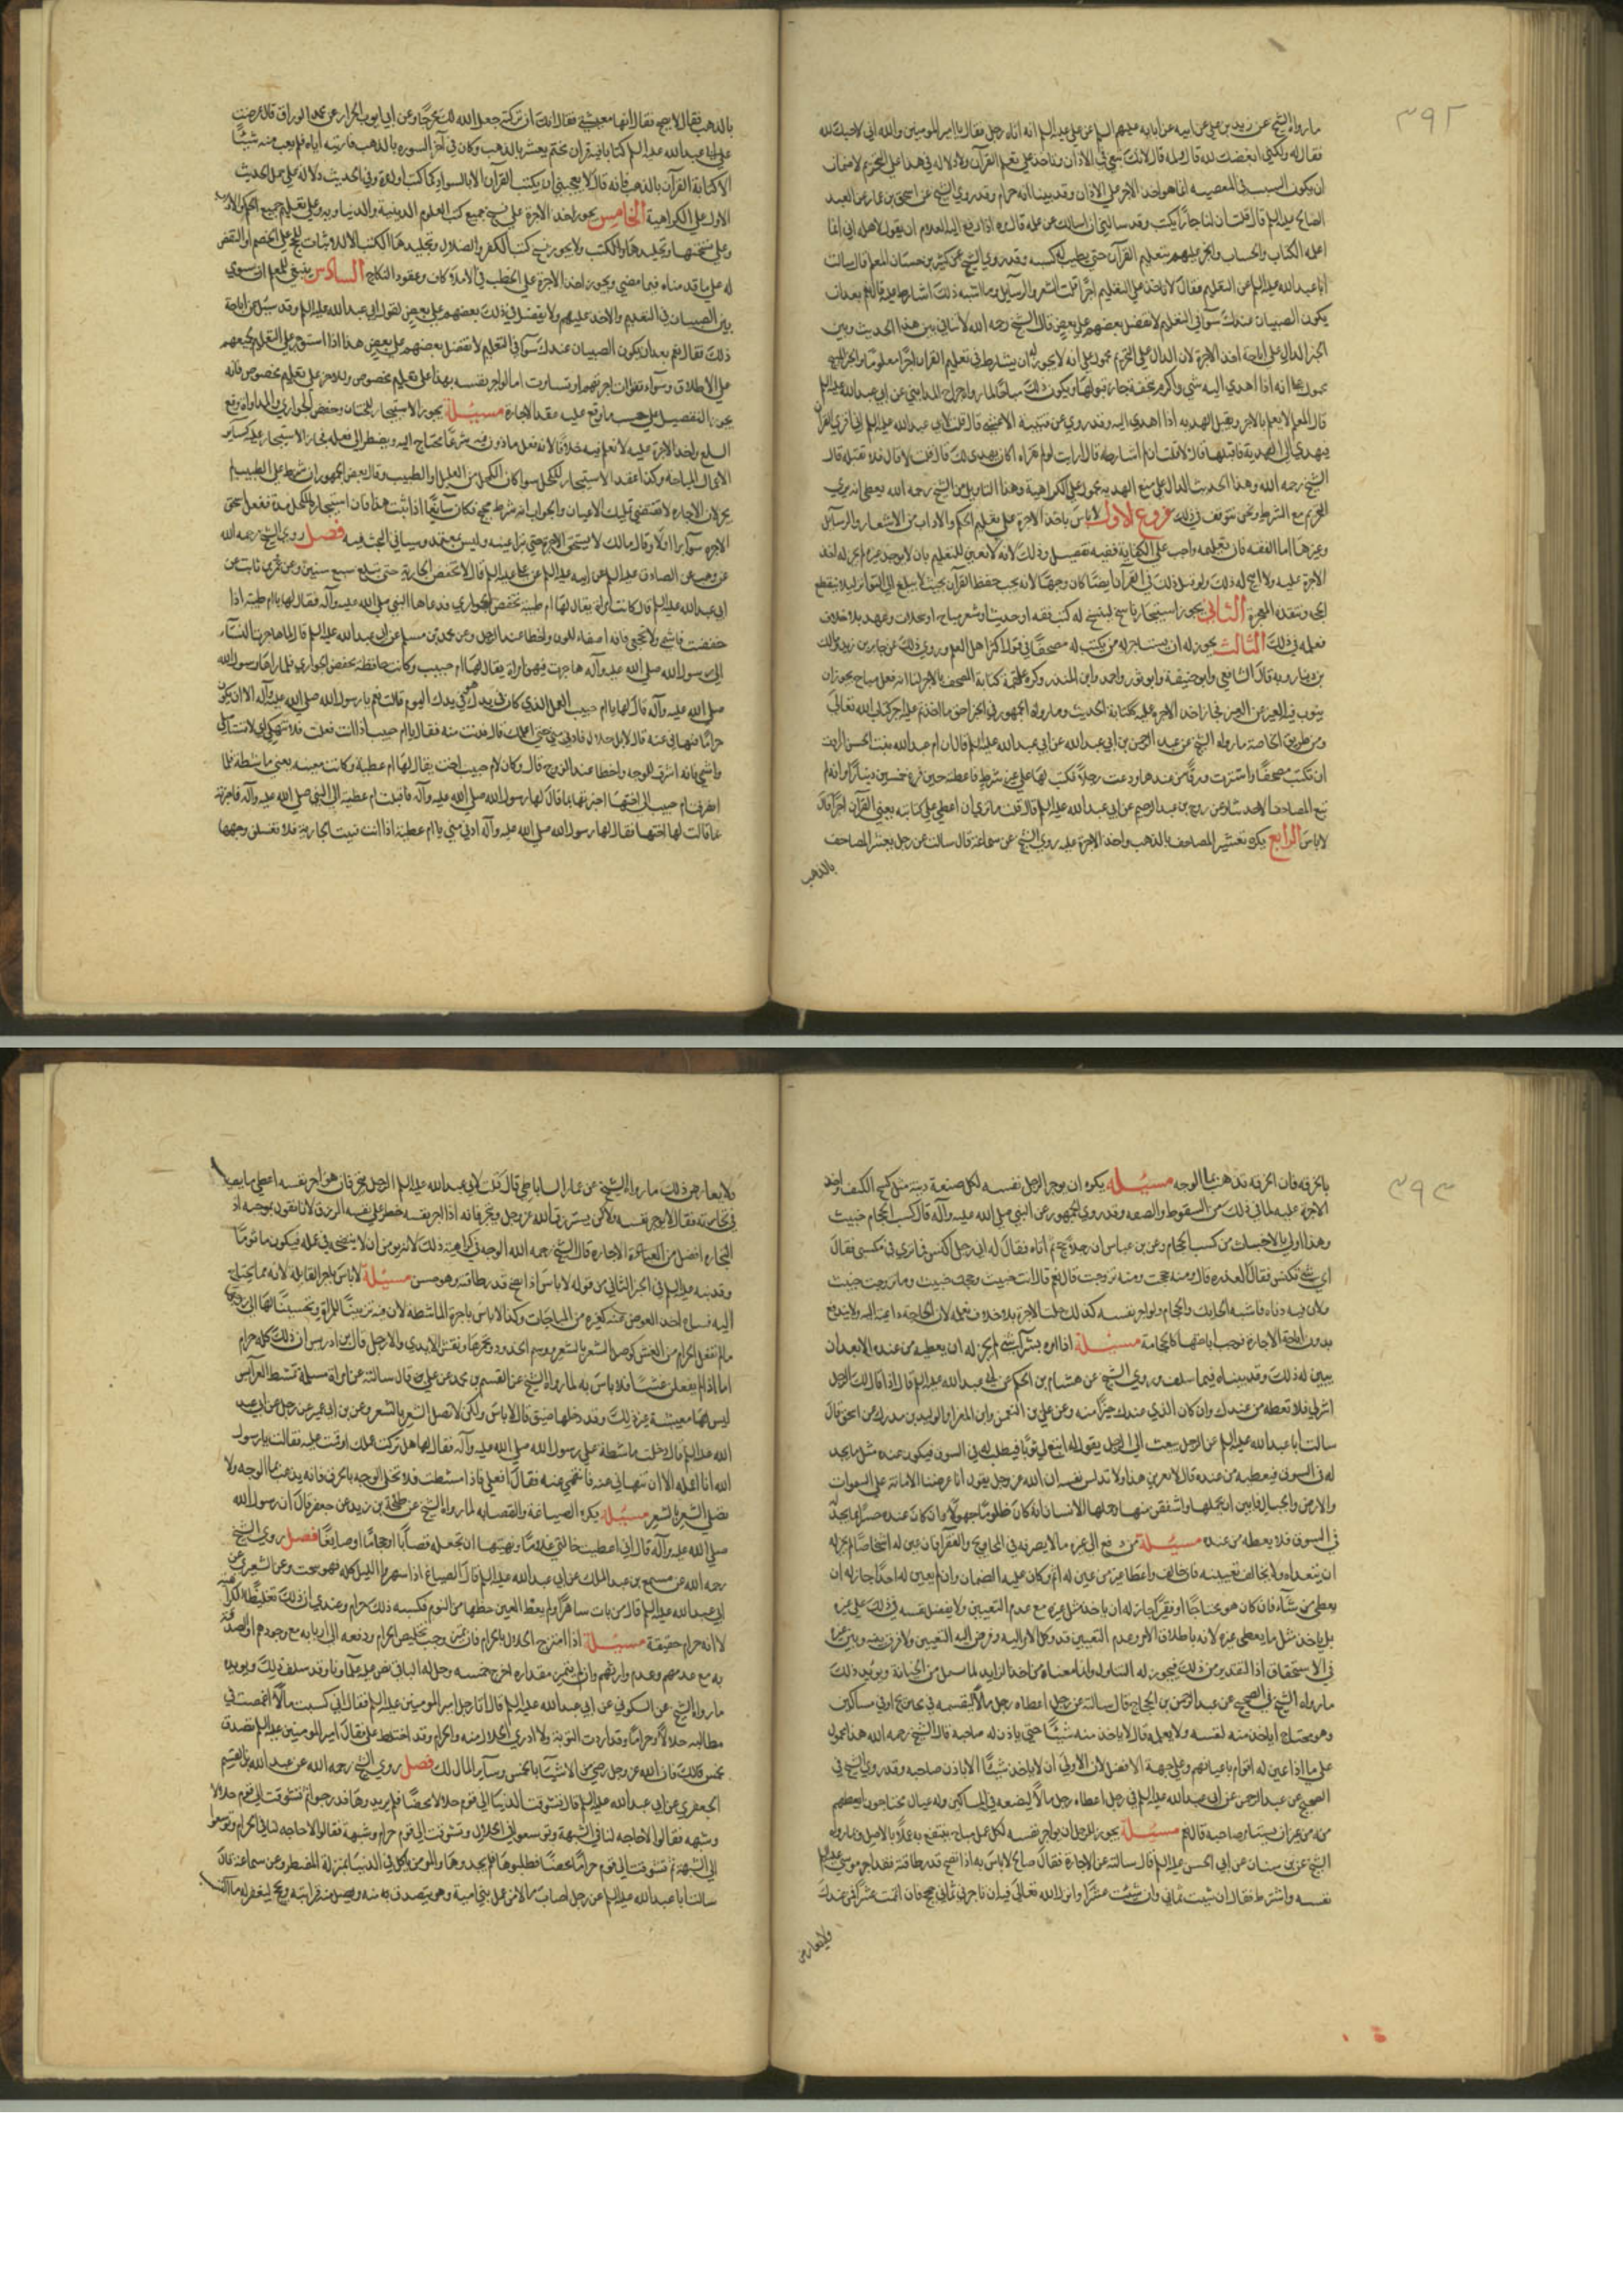 ٣٩٢
ما رواه الشيخ عن زيد بن علي عن ابيه عن ابايه عليهم السلم عن علي عليه السلم انه اتاه رجل فقال يا امير المومنين والله اني لاحبك لله
فقال له ولكني ابغضك لله قال ولم قال لانك تبغي في الاذان وتاخذ علي تعليم القرآن
ان يكون السبب في المعصيه انما هو اخذ الاجر علي الاذان وقد بينا انه حرام وقد روي الشيخ عن اسحق بن عمار عن العبد
الصالح عليه السلم قال قلت ان لنا جاراً يكتب وقد سالني ان اسالك عن عمله قال مره اذا دفع اليه الغلام ان يقول لاهله اني انما
اعلمه الكتاب والحساب واتجر عليهم بتعليم القرآن حتي يطيب له كسبه وقد روي الشيخ عن حسان المعلم قال سالت
ابا عبد الله عليه السلم عن التعليم فقال لا تاخذ علي التعليم اجراً قلت الشعر والرسايل وما اشبه ذلك اشارط عليه قال نعم بعد ان
يكون الصبيان عندك سوآ في التعليم لا تفضل بعضهم علي بعض قال الشيخ رحمه الله لا تنافي بين هذا الحديث وبين
الخبر الدال علي اباحة اخذ الاجرة لان الدال علي التحريم محمول علي انه لا يجوز له ان يشارط في تعليم القرآن اجراً معلوماً والخبر
قال المعلم لا يعلم بالاجر ويقبل الهديه اذا اهدي اليه وقد روي عن قتيبة الاعشي قال قلت لابي عبد الله عليه السلم اني اقري القرآن
فيهدي الي الهدية فاقبلها قال لا قلت ان لم اشارطه قال ارايت لو لم تقراه اكان يهدي لك قال قلت لا قال فلا تقبله قال
الشيخ رحمه الله وهذا الحديث الدال علي منع الهديه محمول علي الكراهية وهذا التاويل من الشيخ رحمه الله يعطي انه يري
التحريم مع الشرط ونحن نتوقف في ذلك فروع الاول لا باس باخذ الاجرة علي تعليم الحكم والاداب من الاشعار والرسايل
وغيرها اما الفقه فان تعليمه واجب علي الكفاية ففيه تفصيل وذلك لانه لا تعين للتعليم بان لا يوجد غيره لم يجز له اخذ
الاجرة عليه والا ابيح له ذلك ولو قيل ذلك في القرآن ايضاً كان وجهاً لانه يجب حفظ القرآن بحيث لا يبلغ الي التواتر ليلا ينقطع
الثاني يجوز استيجار ناسخ لينسخ له كتب فقه او حديث او شعر مباح او سجلات وعهد بلا خلاف
نعلمه في ذلك الثالث يجوز له ان يستاجر من يكتب له مصحفاً في قول اكثر اهل العلم وروي ذلك عن جابر بن زيد ومالك
بن دينار وبه قال الشافعي وابو حنيفة وابو ثور واحمد وابن المنذر وكره علقمة كتابة المصحف بالاجر لنا انه فعل مباح يجوز ان
ينوب فيه الغير عن الغير فجاز اخذ الاجرة عليه ككتابة الحديث وما رواه الجمهور في الخبر احق ما اخذتم عليه اجراً كتاب الله تعالي
ومن طريق الخاصة ما رواه الشيخ عن عبد الرحمن بن ابي عبد الله عن ابي عبد الله عليه السلم قال ان ام عبد الله بنت الحسن ارادت
ان تكتب مصحفاً واشترت ورقاً من عندها ودعت رجلاً فكتب لها علي غير شرط فاعطته حين فرغ خمسين ديناراً وانه لم
تبع المصاحف الا حديثا وعن روح بن عبد الرحيم عن ابي عبد الله عليه السلم قال قلت ما تري ان اعطي علي كتابته يعني القرآن اجراً قال
لا باس الرابع يكره تعشير المصاحف بالذهب واخذ الاجرة عليه روي الشيخ عن سماعة قال سالته عن رجل يعشر المصاحف
بالذهب
بالذهب فقال لا يصلح فقال انها معيشتي فقال انك ان تركته جعل الله لك مخرجاً وعن ابي ايوب الخزاز عن محمد الوراق قال عرضت
علي ابي عبد الله عليه السلم كتاباً فيه قرآن مختم معشر بالذهب وكتب في آخر السوره بالذهب فاريته اياه فلم يعب منه شيئاً
الا كتابة القرآن بالذهب فانه قال لا يعجبني ان يكتب القرآن الا بالسواد كما كتب اول مرة وفي الحديث دلالة علي حمل الحديث
الاول علي الكراهية الخامس يجوز اخذ الاجرة علي نسخ جميع كتب العلوم الدينية والدنياويه وعلي تعليم جميع الحكم والاداب
وعلي نسخها وتجليدها والكتب ولا يجوز نسخ كتب الكفر والضلال وتجليدها الا لاثبات الحجج علي الخصم او النقض
له علي ما قدمناه فيما مضي ويجوز اخذ الاجرة علي الخطب في الاملاكات وعقود النكاح السادس ينبغي للمعلم ان يسوي
بين الصبيان في التعليم والاخذ عليهم ولا يفضل في ذلك بعضهم علي بعض لقول ابي عبد الله عليه السلم وقد سئل عن اباحة
ذلك فقال نعم بعد ان يكون الصبيان عندك سوآ في التعليم لا تفضل بعضهم علي بعض هذا اذا استوجر علي التعليم لجميعهم
علي الاطلاق وسوآء تفاوتت اجرتهم او تساوت اما لو اجر نفسه بهذا علي تعليم مخصوص ولاخر علي تعليم مخصوص فانه
يجوز التفضيل علي حسب ما وقع عليه عقد الاجارة مسئلة يجوز الاستيجار للختان وخفض الجواري والمداواة وقطع
السلع واخذ الاجرة عليه لا نعلم فيه خلافاً لانه فعل ماذون فيه شرعاً محتاج اليه ويضطر الي فعله فجاز الاستيجار عليه كساير
الافعال المباحة وكذا عقد الاستيجار للكحل سوا كان الكحل من العليل او الطبيب وقال بعض الجمهور ان شرط علي الطبيب لم
يجز لان الاجاره لا تقتضي تمليك الاعيان والجواب انه شرط صحيح فكان سايغاً اذا ثبت هذا فان استيجاره للكحل مدة ففعل استحق
الاجره سوآ برا اولا وقال مالك لا يستحق الاجرة حتي تبرا عينه وليس بمعتمد وسياتي البحث فيه فصل روي الشيخ رحمه الله
عن وهب عن الصادق عليه السلم عن ابيه عليه السلم عن علي عليه السلم قال لا تخفض الجارية حتي تبلغ سبع سنين
ابي عبد الله عليه السلم قال كانت امراة يقال لها ام طيبة تخفض الجواري فدعاها النبي صلي الله عليه وآله فقال لها يا ام طيبه اذا
خفضت فاشمي ولا تجحفي فانه اصفا للون واحظا عند الرجل وعن محمد بن مسلم عن ابي عبد الله عليه السلم قال لما هاجرن النسآء
الي رسول الله صلي الله عليه وآله هاجرت فيهن امراة يقال لها ام حبيب وكانت خافظة تخفض الجواري فلما راها رسول الله
صلي الله عليه وآله قال لها يا ام حبيب العمل الذي كان في يدك هو في يدك اليوم قالت نعم يا رسول الله صلي الله عليه وآله الا ان يكون
حراماً فتنهاني عنه قال لا بل حلال فادني مني حتي اعلمك قال فدنت منه فقال يا ام حبيب اذا انت فعلت فلا تنهكي اي لا تستاصلي
واشمي فانه اشرق للوجه واحظا عند الزوج قال وكان لام حبيب اخت يقال لها ام عطية وكانت مقينه يعني ماشطة فلما
انصرفت ام حبيب الي اختها اخبرتها بما قال لها رسول الله صلي الله عليه وآله فاقبلت ام عطية الي النبي صلي الله عليه وآله فاخبرته
بما قالت لها اختها فقال لها رسول الله صلي الله عليه وآله ادني مني يا ام عطية اذا انت قينت الجارية فلا تغسلن وجهها
٣٩٣
بالخرقه فان الخرقه تذهب بما الوجه مسئلة يكره ان يوجر الرجل نفسه لكل صنعة دينه مثل كسح الكنف واخذ
الاجرة عليه لما في ذلك من السقوط والضعه وقد روي الجمهور عن النبي صلي الله عليه وآله قال كسب الحجام خبيث
وهذا اولي بالاخباث من كسب الحجام وعن بن عباس ان رجلاً حج ثم اتاه فقال له اني رجل اكنس فما تري في مكسبي فقال
اي شي تكنس فقال العذره قال ومنه حججت ومنه تزوجت قال نعم قال انت خبيث وحجك خبيث وما تزوجت خبيث
ولان فيه دناه فاشبه الحايك والحجام ولو اجر نفسه كذلك حلت الاجرة بلا خلاف نعلمه لان الحاجة داعية اليه ولا يندفع
بدون اباحة الاجارة فوجب اباحتها كالحجامة مسئلة اذا امره بشرآ شي لم يجز له ان يعطيه من عنده الا بعد ان
يبين له ذلك وقد بيناه فيما سلف روي الشيخ عن هشام بن الحكم عن ابي عبد الله عليه السلم قال اذا قال لك الرجل
اشتر لي فلا تعطه من عندك وان كان الذي عندك خيراً منه وعن علي بن النعمن وابي المغرا والوليد بن مدرك عن اسحق قال
سالت ابا عبد الله عليه السلم عن الرجل يبعث الي الرجل يقول له ابتع لي ثوباً فيطلب له في السوق فيكون عنده مثل ما يجد
له في السوق فيعطيه من عنده قال لا يقربن هذا ولا يدنس نفسه ان الله عز وجل يقول انا عرضنا الامانة علي السموات
والارض والجبال فابين ان يحملنها واشفقن منها وحملها الانسان انه كان ظلوماً جهولاً وان كان عنده خيراً مما يجد له
في السوق فلا يعطه من عنده مسئلة من دفع الي غيره مالا يصرفه في المحاويج والفقرآ فان عين له اشخاصا لم يجز له
ان يتعداه ولا يخالف تعيينه فان خالف واعطا غير من عين له اثم وكان عليه الضمان وان لم يعين له احداً جاز له ان
يعطي من شآء فان كان هو محتاجاً او فقيراً جاز له ان ياخذ مثل غيره مع عدم التعيين ولا يفضل نفسه في ذلك علي غيره
بل ياخذ مثل ما يعطي غيره لانه باطلاق الامر وعدم التعيين قد وكل الامر اليه وفوض اليه التعيين ولا فرق بينه وبين غيره
في الاستحقاق اذا التقدير من ذلك فيجوز له التناول وانما منعناه من اخذ الزايد لما سبل من الخيانة ويويد ذلك
ما رواه الشيخ في الصحيح عن عبد الرحمن بن الحجاج قال سالته عن رجل اعطاه رجل مالاً ليقسمه في محاويج او في مساكين
وهو محتاج اياخذ منه لنفسه ولا يعلمه قال لا ياخذ منه شيئاً حتي ياذن له صاحبه قال الشيخ رحمه الله هذا محمول
علي ما اذا عين له اقوام باعيانهم وعلي جهة الافضل لان الاولي ان لا ياخذ شيئاً الا باذن صاحبه وقد روي الشيخ في
الصحيح عن عبد الرحمن عن ابي عبد الله عليه السلم في رجل اعطاه رجل مالاً ليضعه في المساكين وله عيال محتاجون ايعطيهم
منه من غير ان يستامر صاحبه قال نعم مسئلة يجوز للرجل ان يواجر نفسه لكل عمل مباح ينتفع به عملاً بالاصل وما رواه
الشيخ عن بن سنان عن ابي الحسن عليه السلم قال سالته عن الاجارة فقال صالح لا باس به اذا نصح قدر طاقته فقد اجر موسي عليه السلم
نفسه واشترط فقال ان شيت ثماني وان شيت عشراً وانزل الله تعالي فيه ان تاجرني ثماني حجج فان اتممت عشراً فمن عندك
ولا يعارض
ولا يعارض ذلك ما رواه الشيخ عن عمار الساباطي قال قلت لابي عبد الله عليه السلم الرجل يتجر فان هو اجر نفسه اعطي ما يصيب
في تجارته فقال لا يوجر نفسه ولكن يسترزق الله عز وجل ويتجر فانه اذا اجر نفسه حظر علي نفسه الرزق لانا نقول بوجه
التجاره افضل من الاجاره قال الشيخ رحمه الله الوجه في كراهية ذلك لانه لا يومن ان لا ينصحه في عمله فيكون ماثوماً
وقد نبه عليه السلم في الخبر الثاني من قوله لا باس اذا نصح قدر طاقته وهو حسن مسئلة لا باس باجر القابلة لانه مما يحتاج
اليه فساغ اخذ العوض عنه كغيره من المباحات وكذا لا باس باجرة الماشطه لان فيه تزييناً للمراة وتحسيناً لها الي زوجها
ما لم تفعل الحرام من الغش كوصل الشعر بالشعر ووسم الخدود وتحميرها ونقش الايدي والارجل قال بن ادريس ان ذلك كله حرام
اما اذا لم يفعلن غشاً فلا باس به لما رواه الشيخ عن القسم بن محمد عن علي قال سالته عن امراة مسلمة تمشط العرايس
ليس لها معيشة غير ذلك وقد دخلها ضيق قال لا باس ولكن لا تصل الشعر بالشعر وعن بن ابي عمير عن رجل عن ابي عبد
الله عليه السلم قال دخلت ماشطة علي رسول الله صلي الله عليه وآله فقال لها هل تركت عملك او اقمت عليه فقالت يا رسول
الله انا اعمله الا ان تنهاني عنه فانتهي عنه فقال افعلي فاذا مشطت فلا تجلي الوجه بالخرق فانه يذهب بما الوجه ولا
تصلي الشعر بالشعر مسئلة يكره الصياغة والقصابه لما رواه الشيخ عن طلحة بن زيد عن جعفر قال ان رسول الله
صلي الله عليه وآله قال اني اعطيت خالتي غلاما ونهيتها ان تجعله قصاباً او حجاماً او صايغاً فصل روي الشيخ
رحمه الله عن مسمع بن عبد الملك عن ابي عبد الله عليه السلم قال الصناع اذا سهروا الليل كله فهو سحت وعن الشعيري عن
ابي عبد الله عليه السلم قال من بات ساهراً ولم يعط العين حظها من النوم فكسبه ذلك حرام وعندي ان ذلك تغليظاً للكراهية
لا انه حرام حقيقة مسئلة اذا امتزج الحلال بالحرام فان تميز وجب تخليص الحرام ودفعه الي اربابه مع وجودهم او الصدقة
به مع عدمهم وعدم وارثهم وان لم يتميز مقداره اخرج خمسه وحل له الباقي نص عليه علمآونا وقد سلف ذلك ويويده
ما رواه الشيخ عن السكوني عن ابي عبد الله عليه السلم قال اتا رجل امير المومنين عليه السلم فقال اني كسبت مالاً اغمضت في
مطالبه حلالاً وحراماً وقد اردت التوبة ولا ادري الحلال منه والحرام وقد اختلط علي فقال امير المومنين عليه السلم تصدق
بخمس مالك فان الله عز وجل رضي من الاشيآ بالخمس وسآير المال لك فصل روي الشيخ رحمه الله عن عبد الله بن القسم
الجعفري عن ابي عبد الله عليه السلم قال تشوقت الدنيا الي قوم حلالا محضاً فلم يريدوها فدرجوا ثم تشوقت الي قوم حلالا
وشبهه فقالوا لا حاجه لنا في الشبهة وتوسعوا في الحلال وتشوقت الي قوم حرام وشبهة فقالوا لا حاجه لنا في الحرام وتوسعوا
في الشبهة ثم تشوقت الي قوم حراما محضاً فطلبوها فلم يجدوها والمومن ياكل في الدنيا بمنزلة المضطر وعن سماعة قال
سالت ابا عبد الله عليه السلم عن رجل اصاب مالا من عمل بني امية وهو يتصدق به منه ويصل منه قرابته ويحج ليغفر له ما اكتسب